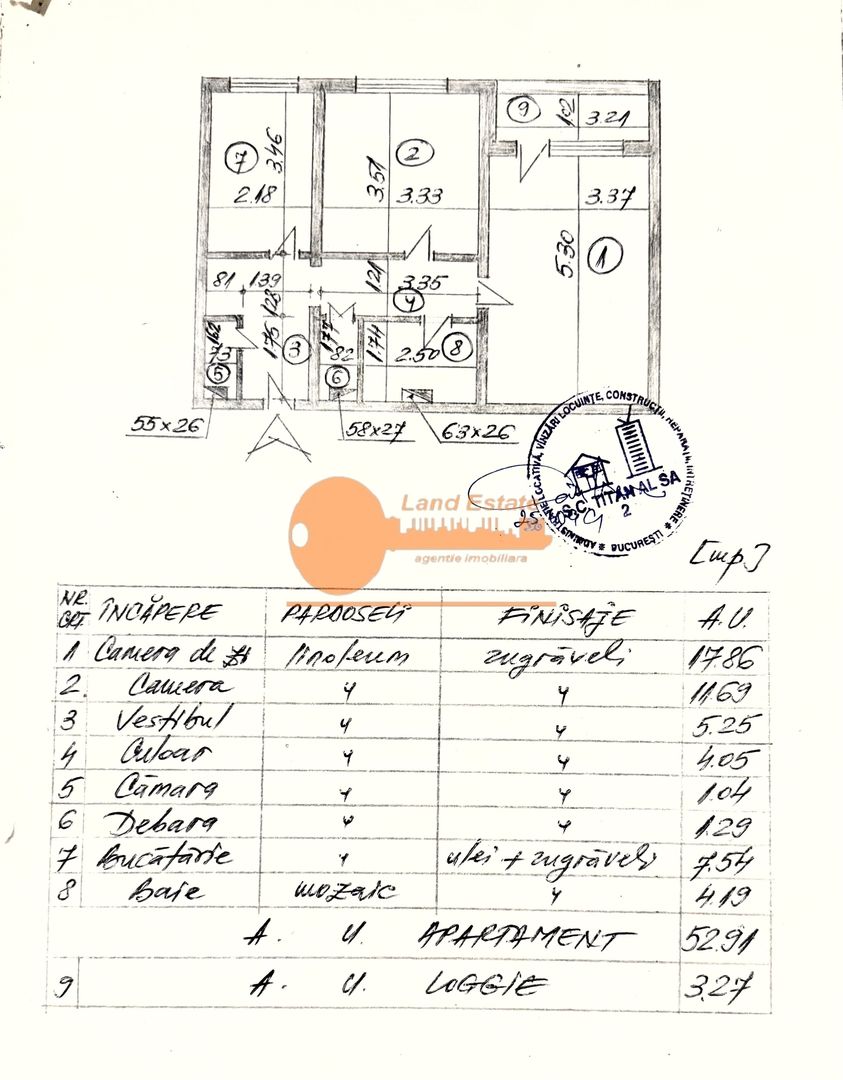 9 1.02 3.21
7 3.46 2.18
2 3.51 3.33
3.37 5.30 1
81 139 1.21 3.35
128 4
162 73 175 3 177 82 1.74 2.50 8
5 6
55x26 58x27 63x26
ADMINISTRAȚIE LOCATIVĂ, VÎNZĂRI LOCUINȚE, CONSTRUCȚII, REPARAȚII, ÎNTREȚINERE
S.C. TITAN AL SA
2
* BUCUREȘTI *
Land Estate
agentie imobiliara
[mp.]
NR. CRT. ÎNCĂPERE PARDOSELI FINISAJE A.U.
1 Camera de zi linoleum zugrăveli 17.86
2. Camera " " 11.69
3 Vestibul " " 5.25
4 Culoar " " 4.05
5 Cămara " " 1.04
6 Debara " " 1.29
7 Bucătărie " ulei + zugrăveli 7.54
8 Baie mozaic " 4.19
A. U. APARTAMENT 52.91
9 A. U. LOGGIE 3.27